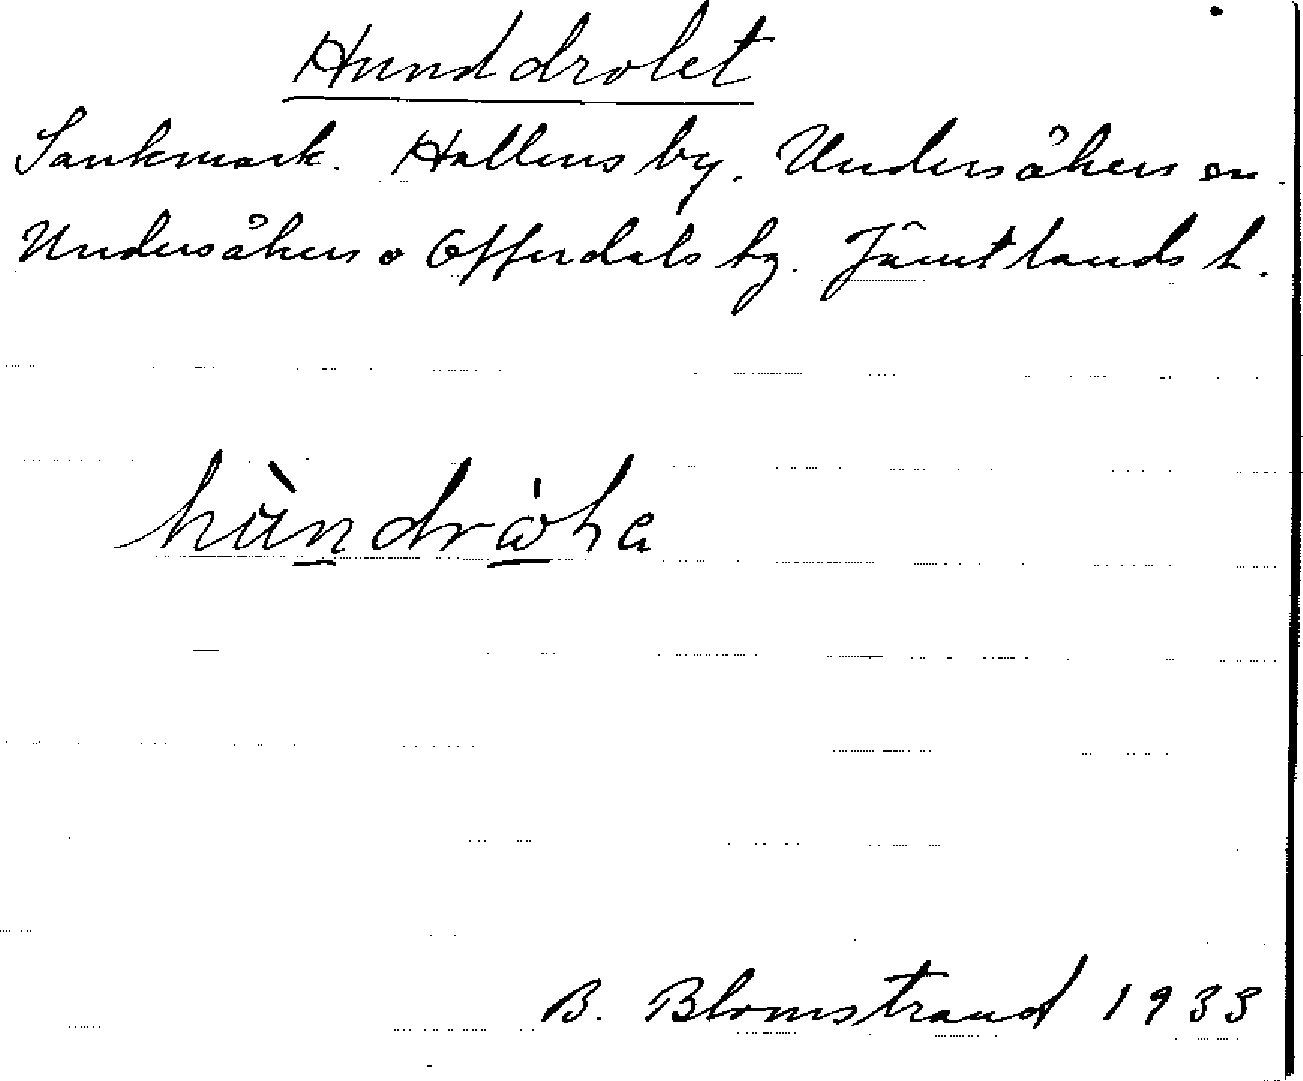 Hunddrolet
Sankmark. Hallens by. Undersåkers sn.
Undersåkers o Offerdals tg. Jämtlands l.
hùndrω̇lα
B. Blomstrand 1933